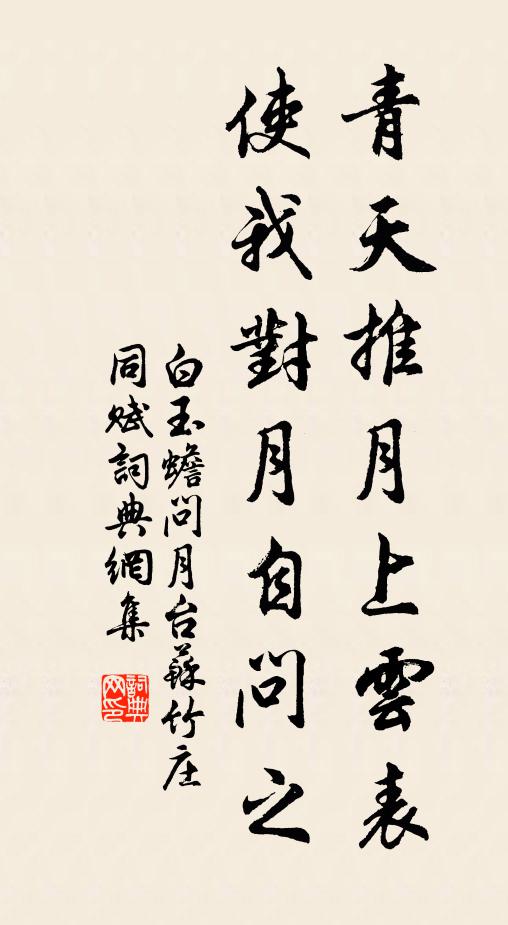 青天推月上雲表
使我對月自問之
白玉蟾問月台蘇竹庄
同賦詞典網集
詞典网印